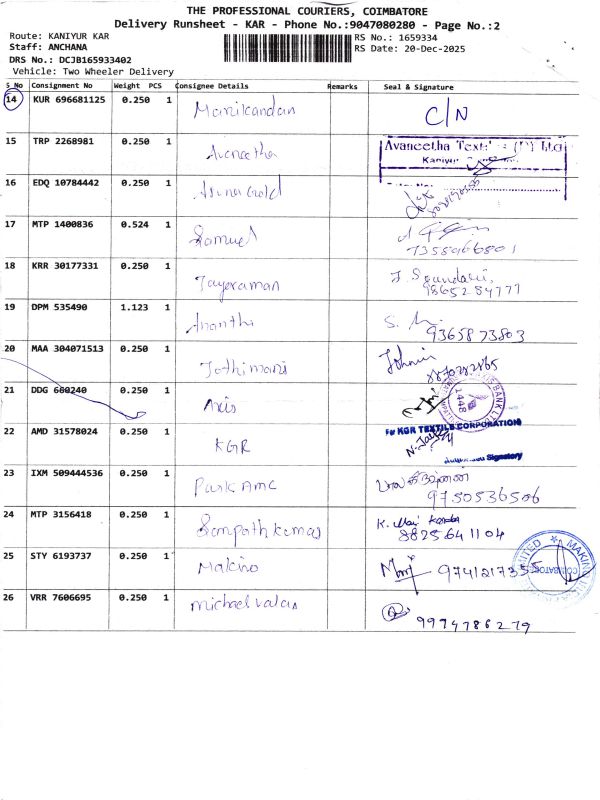 THE PROFESSIONAL COURIERS, COIMBATORE
Delivery Runsheet - KAR - Phone No.:9047080280 - Page No.:2
Route: KANIYUR KAR
RS No.: 1659334
Staff: ANCHANA
RS Date: 20-Dec-2025
DRS No.: DCJB165933402
Vehicle: Two Wheeler Delivery
S No Consignment No Weight PCS Consignee Details Remarks Seal & Signature
14 KUR 696681125 0.250 1 Manikandan C/N
15 TRP 2268981 0.250 1 Avaneetha Avaneetha Textiles (P) Ltd
Kaniyur
16 EDQ 10784442 0.250 1
17 MTP 1400836 0.524 1 Samuel
7358966801
18 KRR 30177331 0.250 1 Jayaraman
9865284777
19 DPM 535490 1.123 1 Anantha S.
9365873803
20 MAA 304071513 0.250 1 Jothimani
21 DDG 660240 0.250 1 Axis BANK LTD 1448
22 AMD 31578024 0.250 1 KGR For KGR TEXTILE CORPORATION
Authorised Signatory
23 IXM 509444536 0.250 1 Park AMC
9750536506
24 MTP 3156418 0.250 1 Sampath kumar K.
8825641104
25 STY 6193737 0.250 1 Makino 9741217355
26 VRR 7606695 0.250 1 michael valan
9994786279